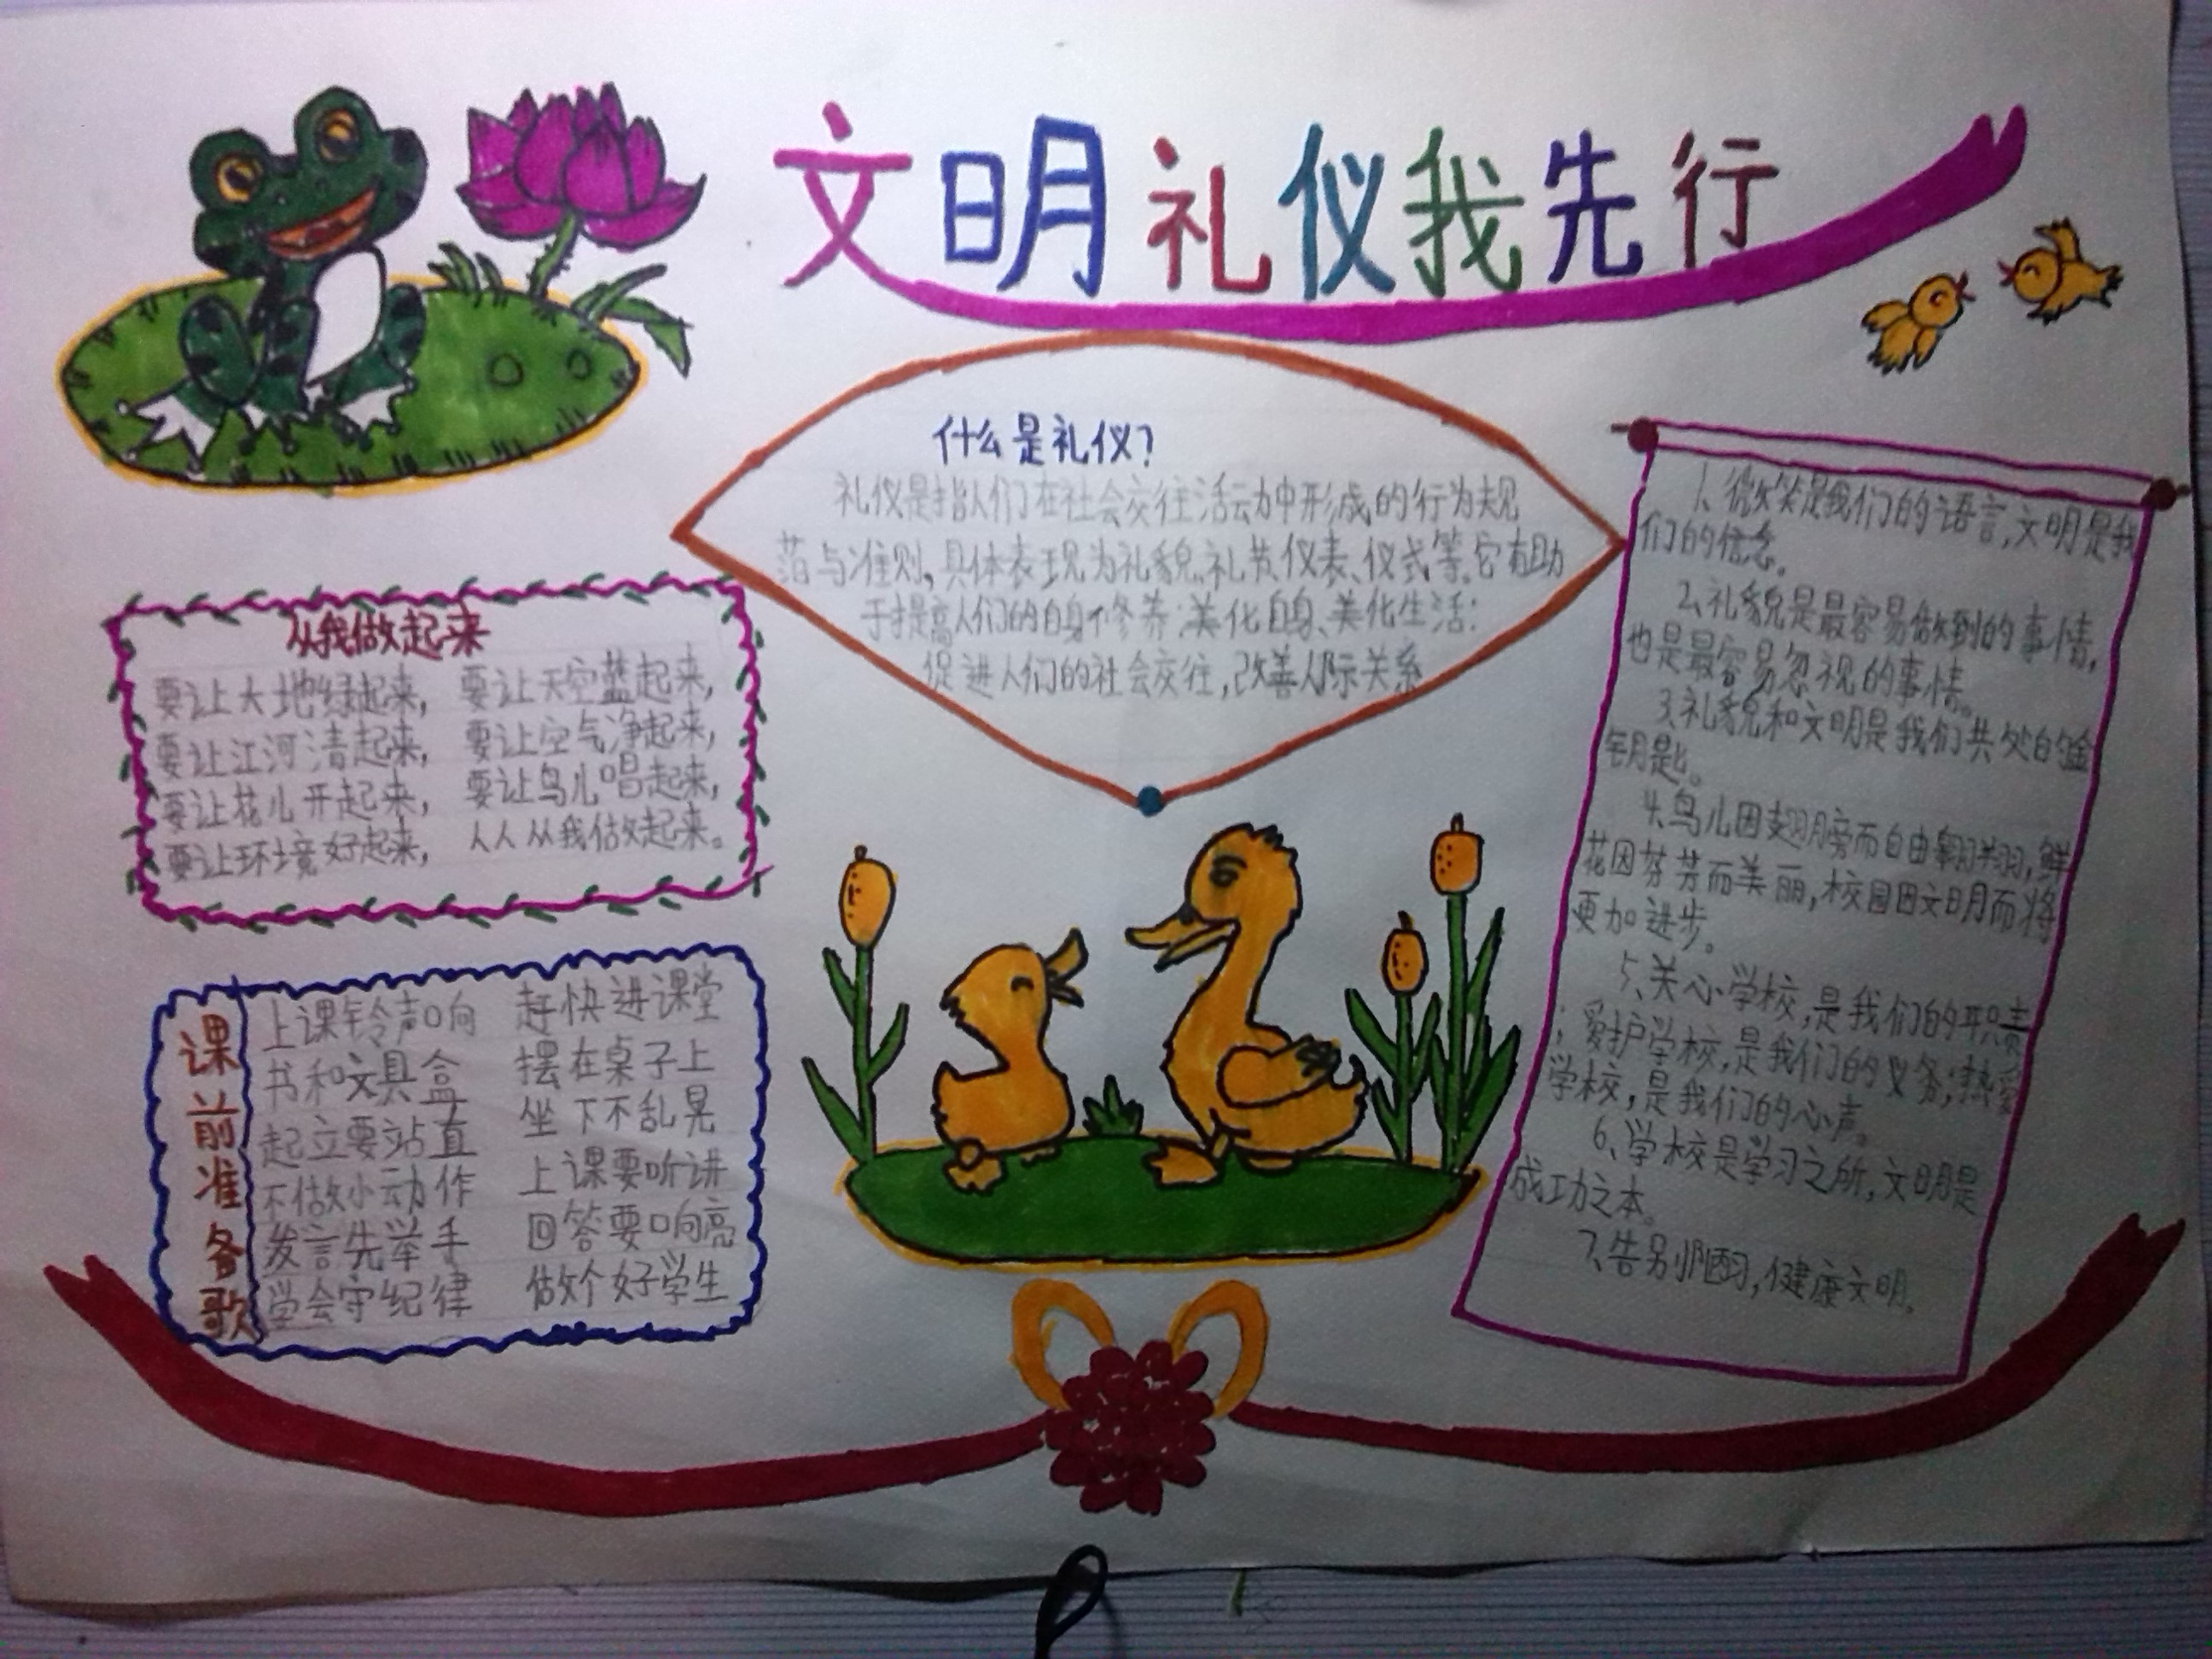 文明礼仪我先行
什么是礼仪?
礼仪是指人们在社会交往活动中形成的行为规
范与准则,具体表现为礼貌、礼节、仪表、仪式等。它有助
于提高人们的自身修养;美化自身、美化生活;
促进人们的社会交往,改善人际关系
从我做起来
要让大地绿起来, 要让天空蓝起来,
要让江河清起来, 要让空气净起来,
要让花儿开起来, 要让鸟儿唱起来,
要让环境好起来, 人人从我做起来。
课前准备歌
上课铃声响 赶快进课堂
书和文具盒 摆在桌子上
起立要站直 坐下不乱晃
不做小动作 上课要听讲
发言先举手 回答要响亮
学会守纪律 做个好学生
1、微笑是我们的语言,文明是我
们的信念。
2、礼貌是最容易做到的事情,
也是最容易忽视的事情。
3、礼貌和文明是我们共处的金
钥匙。
4、鸟儿因翅膀而自由翱翔,鲜
花因芬芳而美丽,校园因文明而将
更加进步。
5、关心学校,是我们的职责
;爱护学校,是我们的义务;热爱
学校,是我们的心声。
6、学校是学习之所,文明是
成功之本。
7、告别陋习,健康文明。